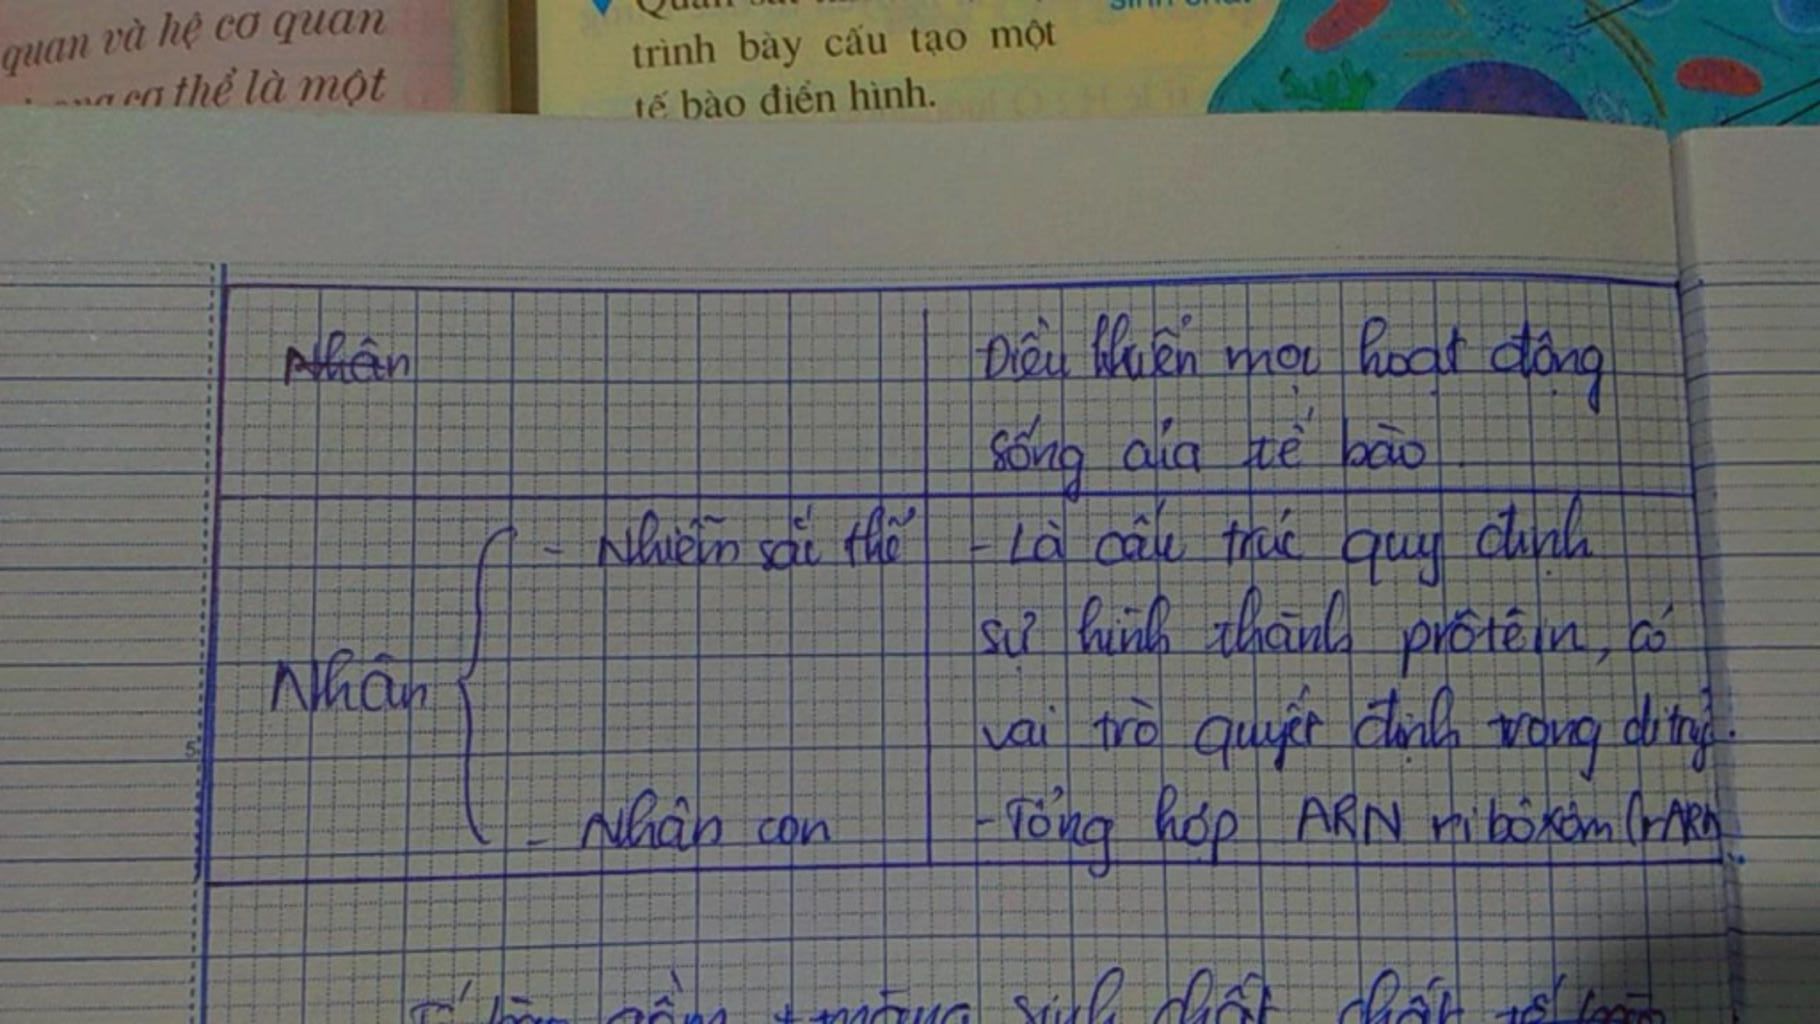 quan và hệ cơ quan
cơ thể là một
trình bày cấu tạo một
tế bào điển hình.
Nhân
Điều khiển mọi hoạt động
sống của tế bào
- Nhiễm sắc thể
- Là cấu trúc quy định
sự hình thành prôtêin, có
vai trò quyết định trong di truyền.
Nhân
- Nhân con
- Tổng hợp ARN ribôxôm (rARN
5